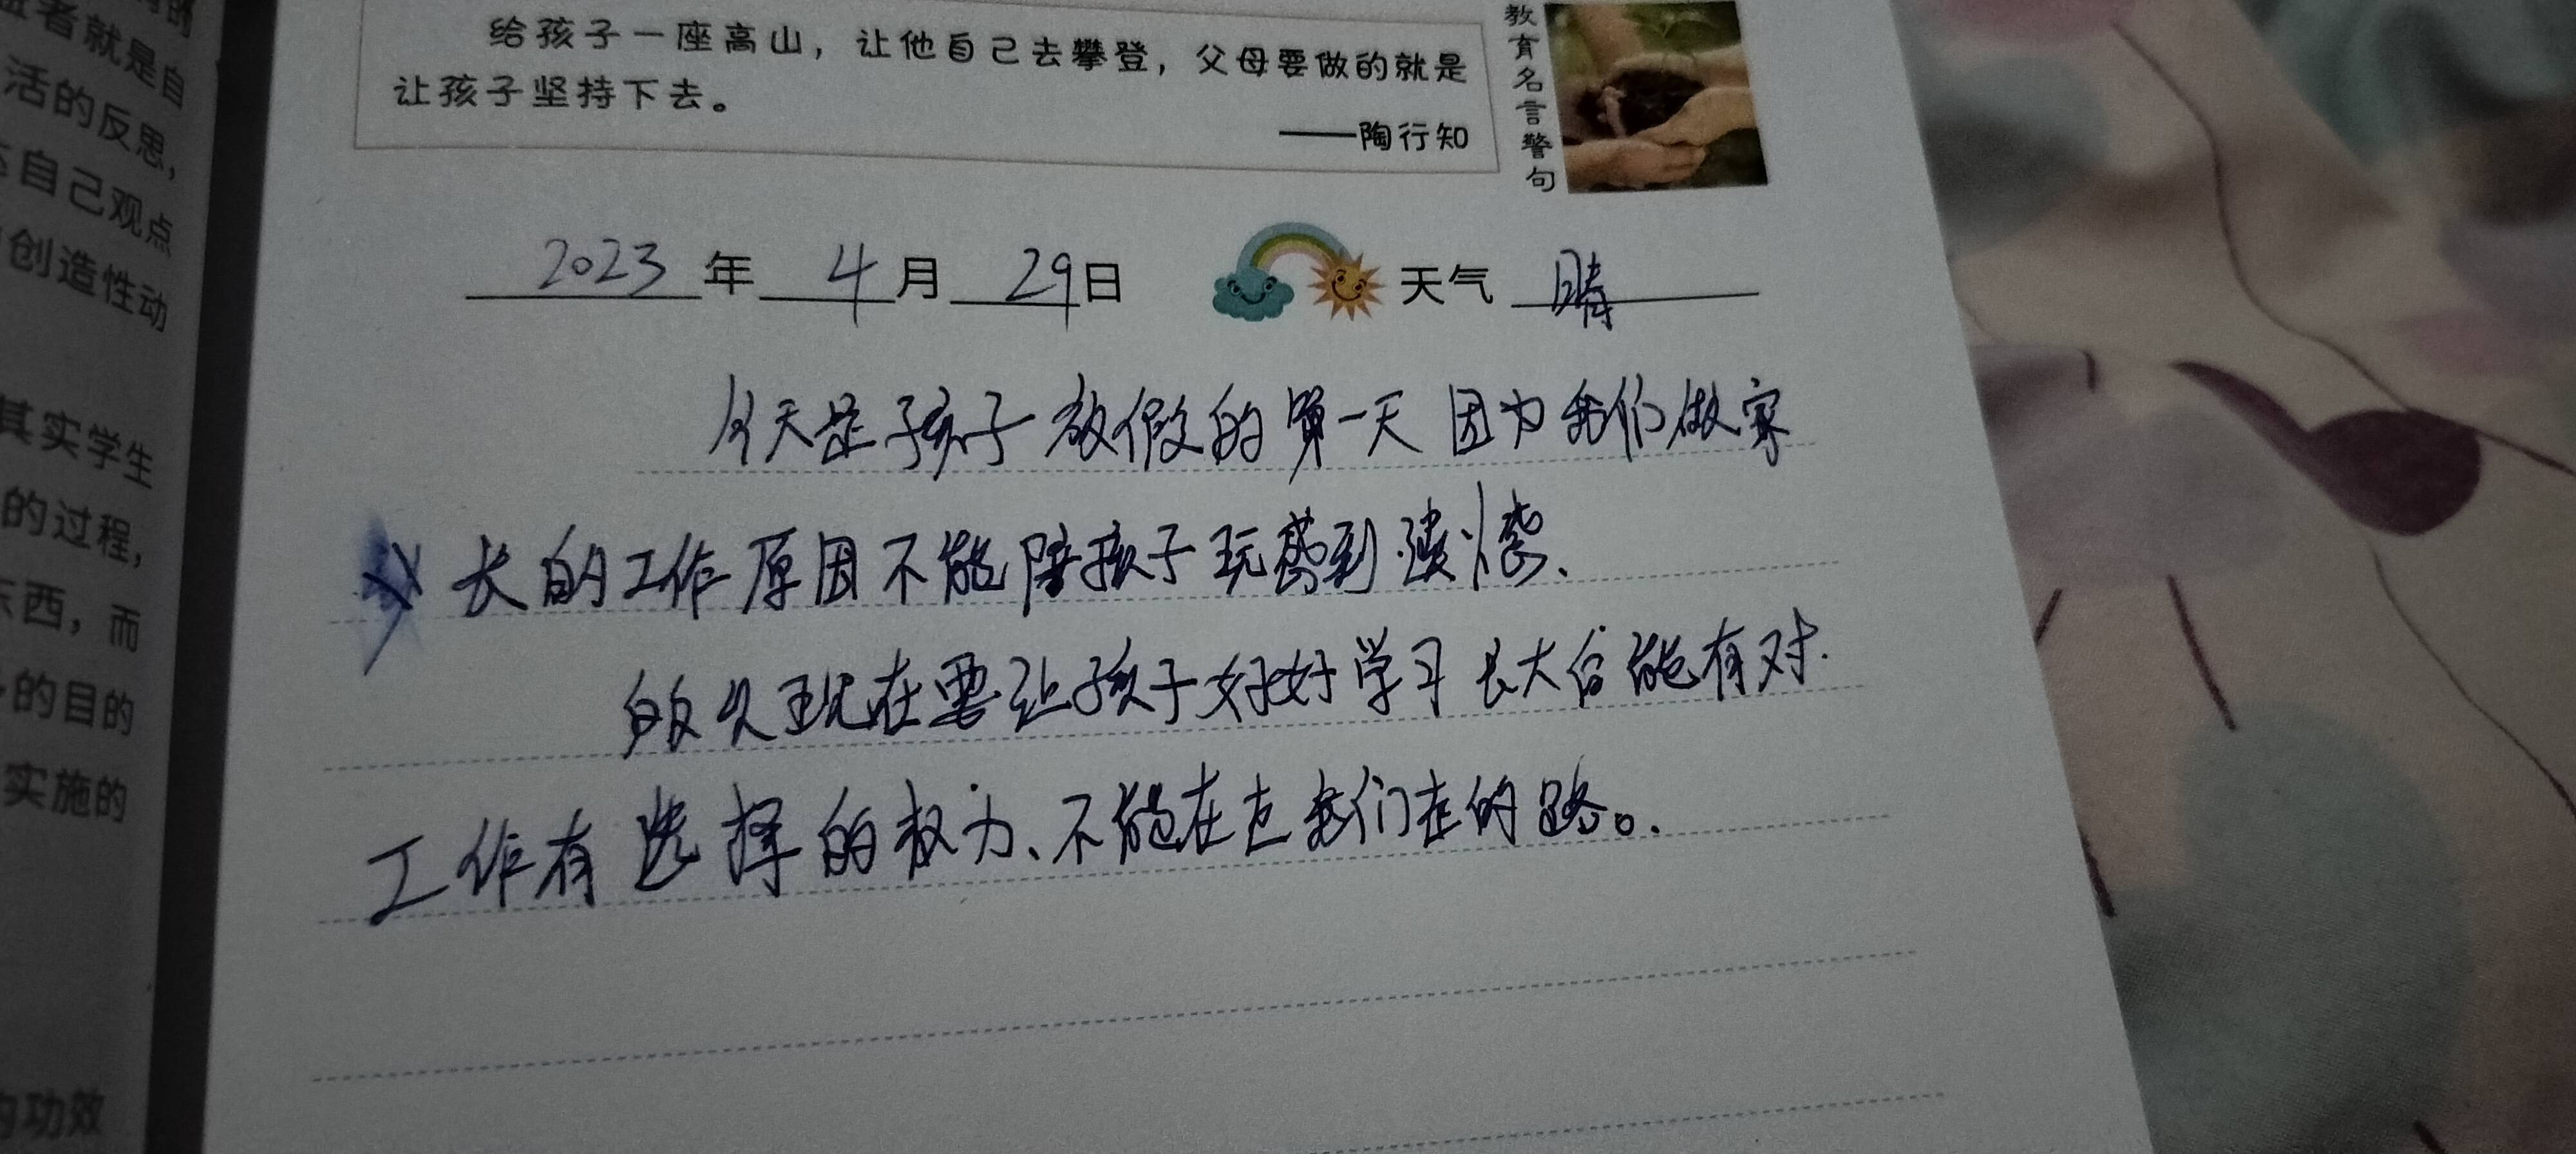 给孩子一座高山，让他自己去攀登，父母要做的就是
让孩子坚持下去。
——陶行知
教育名言警句
2023年4月29日 天气 晴
今天是孩子放假的第一天 因为我们做家
长的工作原因不能陪孩子玩感到遗憾、
现在要让孩子好好学习 长大后能有对
工作有选择的权力、不能在走我们走的路。
者就是自
活的反思，
自己观点
创造性动
其实学生
的过程，
东西，而
的目的
实施的
的功效